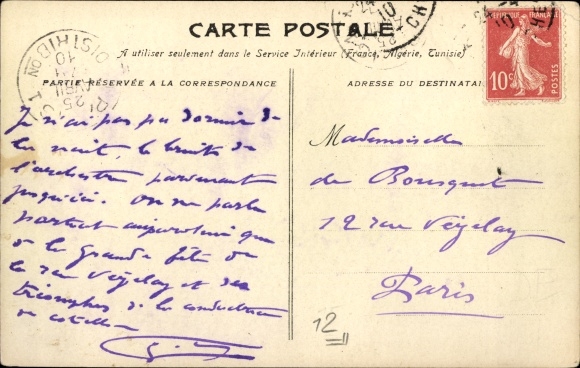 CARTE POSTALE
A utiliser seulement dans le Service Intérieur (France, Algérie, Tunisie)
PARTIE RÉSERVÉE A LA CORRESPONDANCE
ADRESSE DU DESTINATAI
RÉPUBLIQUE FRANÇAISE
10c
Je n'ai pas pu dormir de
la nuit, le bruit de
l'orchestre parvenant
jusqu'ici. On ne parle
partout aujourd'hui que
de la grande fête de
la rue Vézelay et des
triomphes de la conductrice
de cotillon
Mademoiselle
de Bousquet
12 rue Vézelay
Paris
12